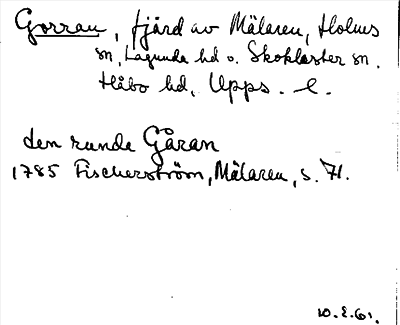 Gorran, fjärd av Mälaren, Holms
sn, Lagunda hd o. Skokloster sn.
Håbo hd, Upps. l.
den runde Gåran
1785 Fischerström, Mälaren, s. 71.
10.2.61.